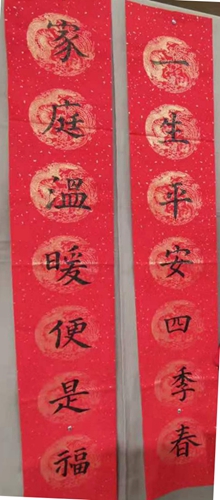 一生平安四季春
家庭温暖便是福